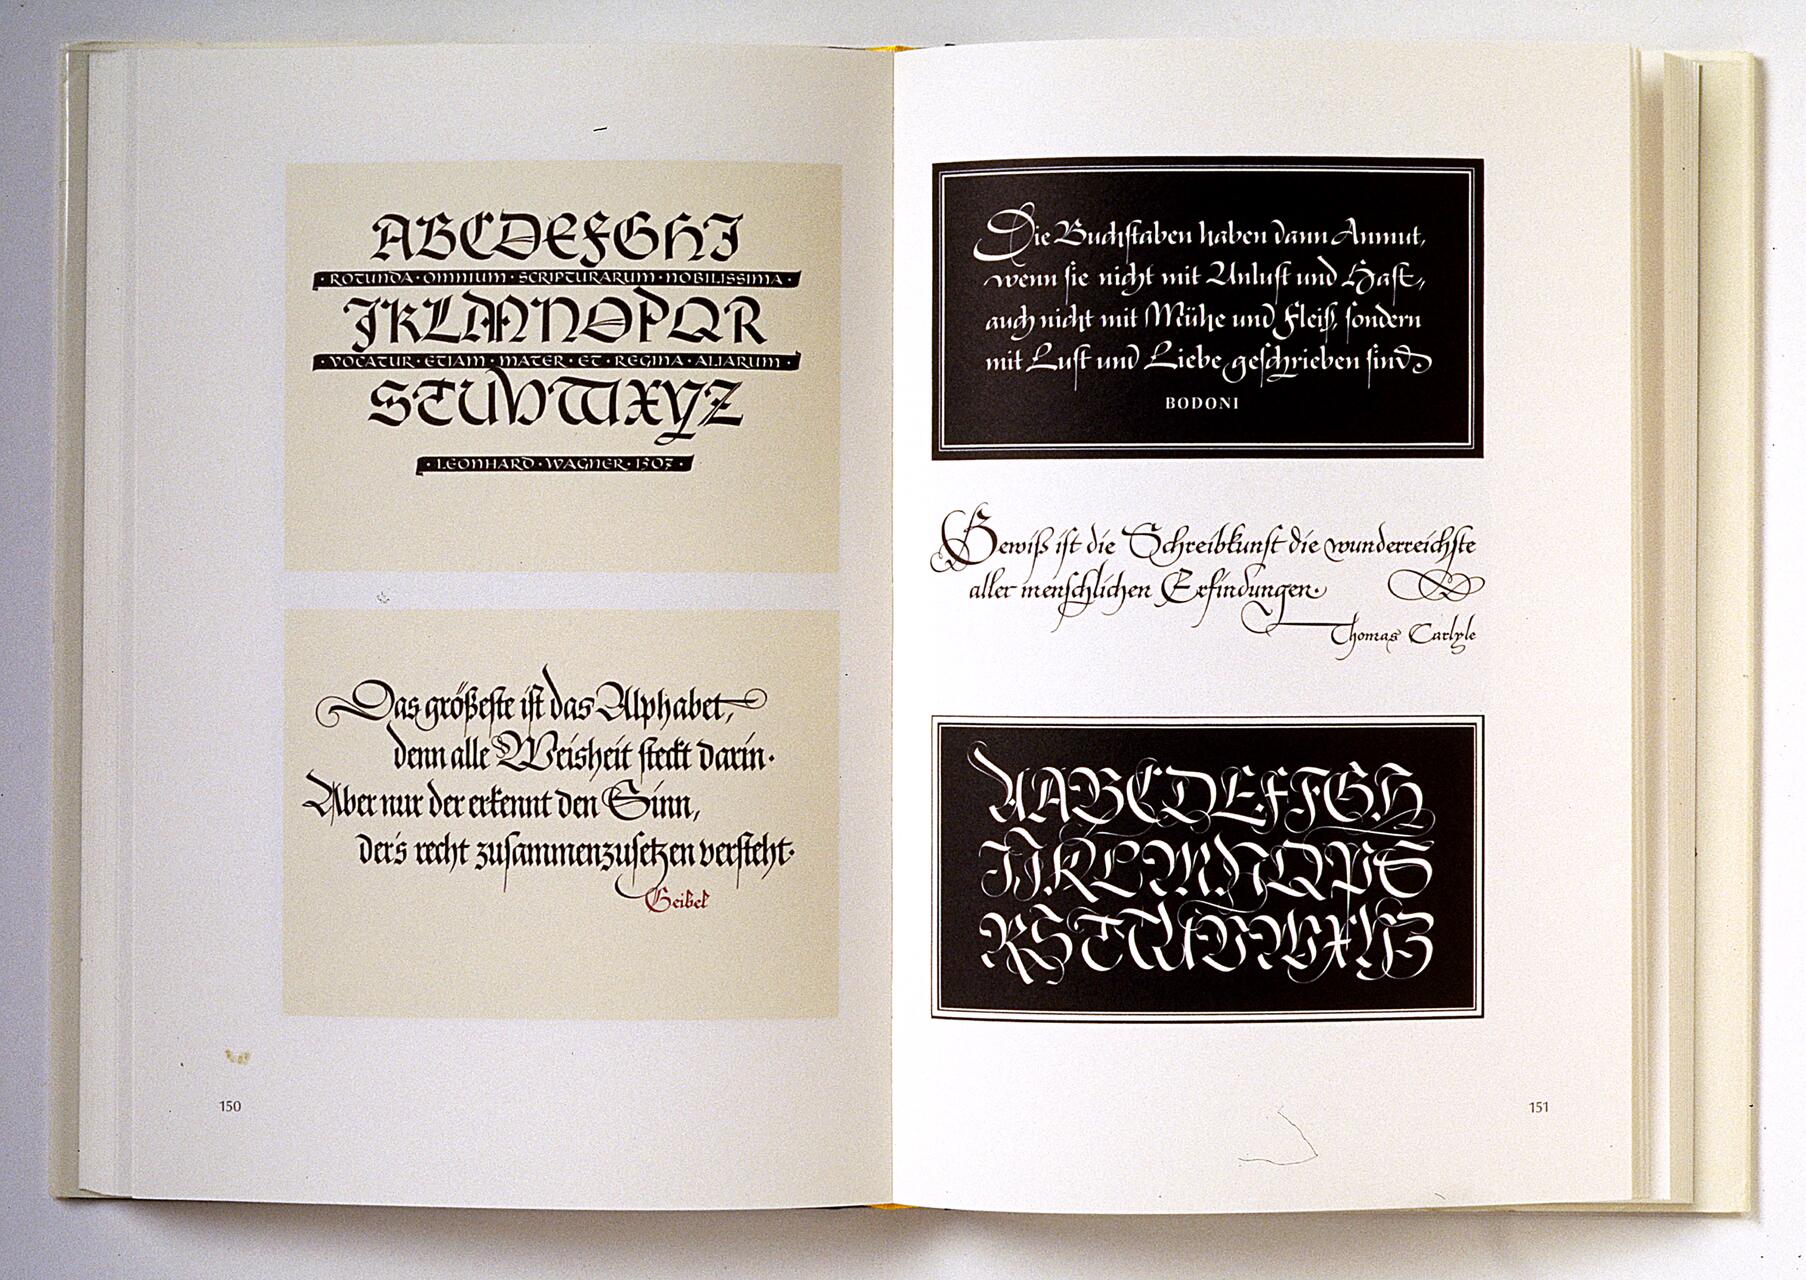 ABCDEFGHI
· ROTUNDA · OMNIUM · SCRIPTURARUM · NOBILISSIMA ·
JKLMNOPQR
· VOCATUR · ETIAM · MATER · ET · REGINA · ALIARUM ·
STUVWXYZ
· LEONHARD · WAGNER · 1507 ·
Das größeste ist das Alphabet,
denn alle Weisheit steckt darin·
Aber nur der erkennt den Sinn,
der's recht zusammenzusetzen versteht·
Geibel
150
Die Buchstaben haben dann Anmut,
wenn sie nicht mit Unlust und Hast,
auch nicht mit Mühe und Fleiß, sondern
mit Lust und Liebe geschrieben sind
BODONI
Gewiß ist die Schreibkunst die wunderreichste
aller menschlichen Erfindungen·
Thomas Carlyle
AABCDEFFGH
IJKLMNOPS
RSTTUVWXYZ
151